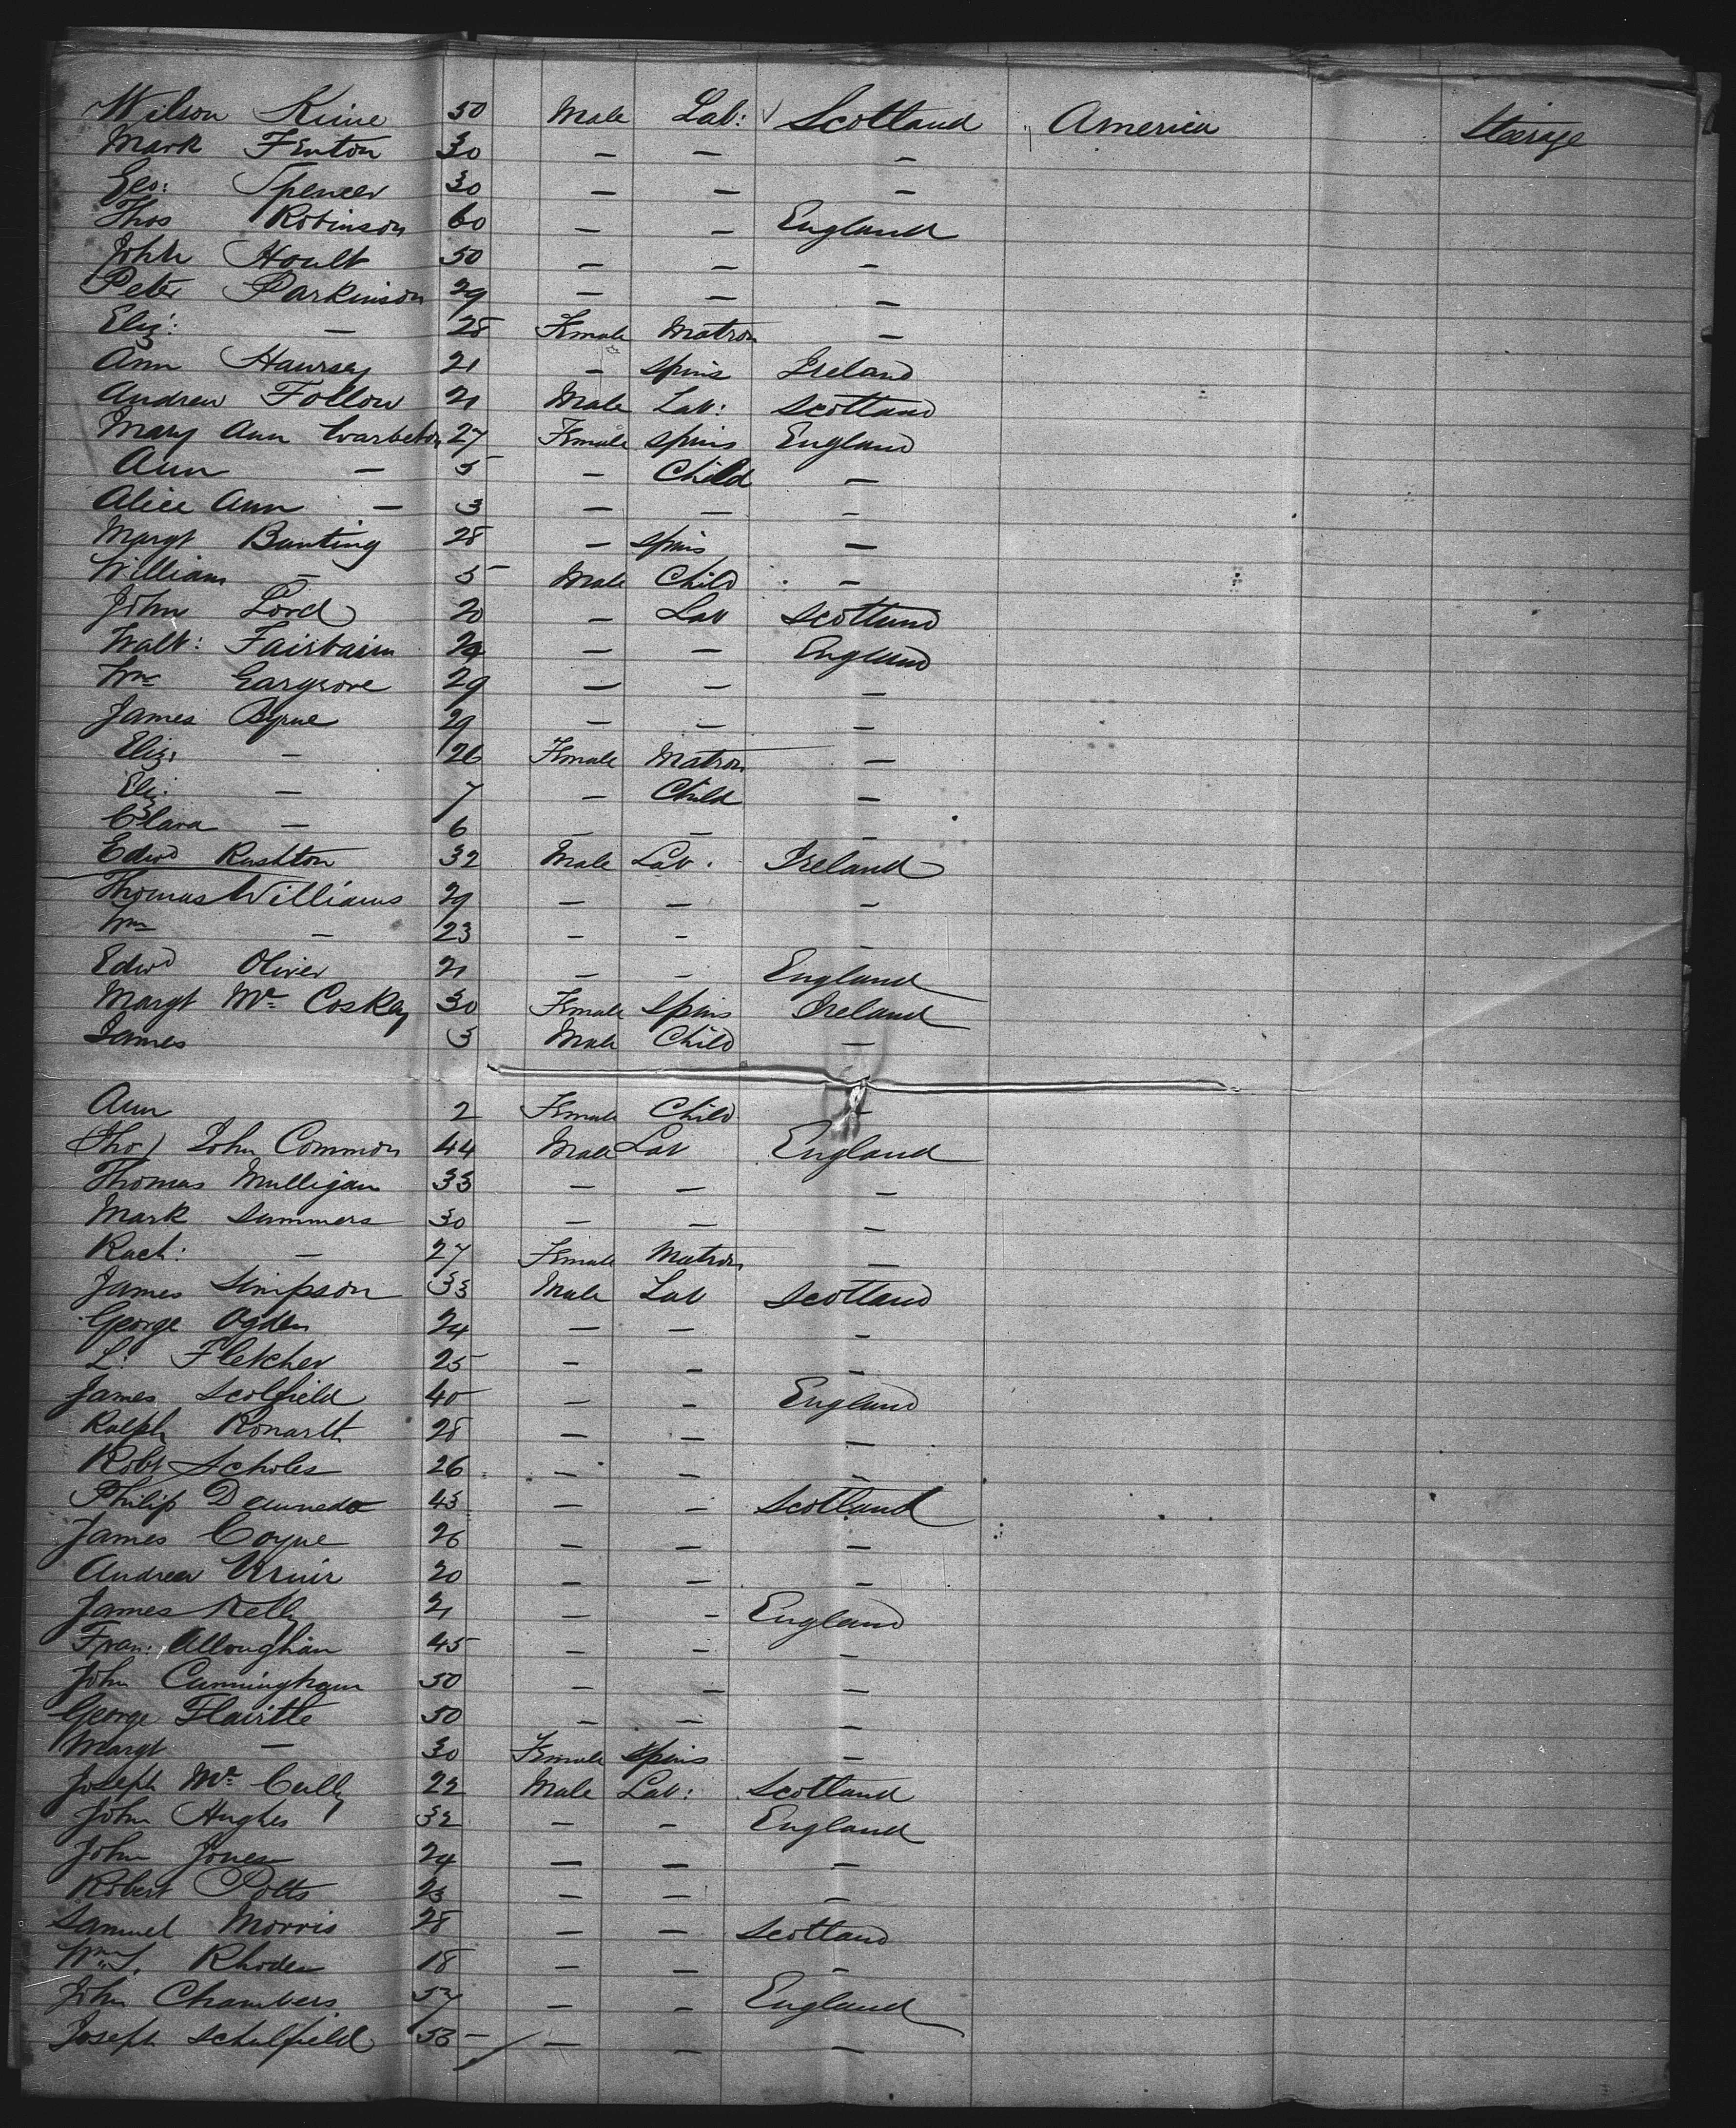 Wilson Kime 50 Male Lab: Scotland America Steerage
Mark Fenton 30 — — —
Geo: Spencer 30 — — —
Thos Robinson 60 — — England
John Hoult 50 — — —
Peter Parkinson 29 — — —
Eliz: — 28 Female Matron —
Ann 21 — Spins Ireland
Andrew Follow 21 Male Lab: Scotland
Mary Ann Warbeton 27 Female Spins England
Ann — 5 — Child —
Alice Ann — 3 — — —
Margt Bunting 28 — Spins —
William — 5 Male Child —
John Lord 20 — Lab Scotland
Walt: Fairbairn 29 — — England
Wm Gargrove 29 — — —
James Byrne 29 — — —
Eliz: — 26 Female Matron —
Eliz: — 7 — Child —
Clara — 6 — — —
Edwd Rushton 32 Male Lab: Ireland
Thomas Williams 29 — — —
Wm — 23 — — —
Edwd Oliver 21 — — England
Margt Mc Coskey 30 Female Spins Ireland
James 3 Male Child —
Ann 2 Female Child —
(Tho) John Common 44 Male Lab England
Thomas Mulligan 33 — — —
Mark Summers 30 — — —
Rach: — 27 Female Matron —
James Simpson 33 Male Lab Scotland
George Ogden 24 — — —
L: Fletcher 25 — — —
James Scolfield 40 — — England
Ralph 28 — — —
Robt Scholes 26 — — —
Philip 43 — — Scotland
James Coyne 26 — — —
Andrew 20 — — —
James Kelly 21 — — England
Fran: Alloughan 45 — — —
John Cunningham 50 — — —
George Flairtte 50 — — —
Margt — 30 Female Spins —
Joseph Mc Cully 22 Male Lab: Scotland
John Hughes 32 — — England
John Jones 24 — — —
Robert Potts 23 — — —
Samuel Morris 28 — — Scotland
Wm S. Rhoden 18 — — —
John Chambers 57 — — England
Joseph Schulfield 53 — — — —